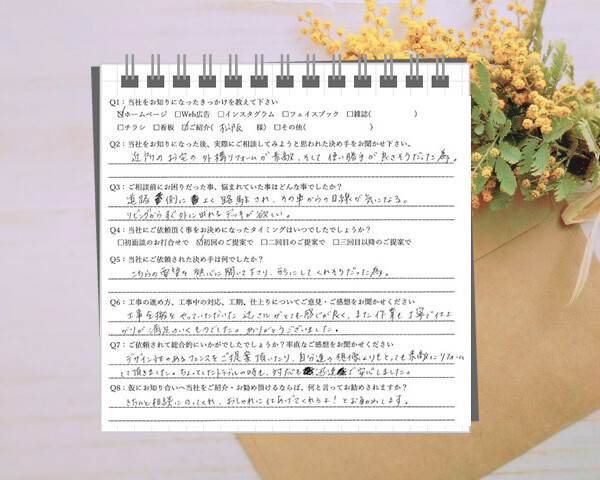 Q1：当社をお知りになったきっかけを教えて下さい
☑ホームページ □Web広告 □インスタグラム □フェイスブック □雑誌( )
□チラシ □看板 ☑ご紹介( 松阪 様) □その他( )
Q2：当社をお知りになった後、実際にご相談してみようと思われた決め手をお聞かせ下さい。
近所のお宅の外構リフォームが素敵、そして使い勝手が良さそうだった為。
Q3：ご相談前にお困りだった事、悩まれていた事はどんな事でしたか？
道路側によく路駐され、その車からの目線が気になる。
リビングからすぐ外に出れるデッキが欲しい。
Q4：当社にご依頼頂く事をお決めになったタイミングはいつでしたでしょうか？
□初面談のお打合せで ☑初回のご提案で □二回目のご提案で □三回目以降のご提案で
Q5：当社にご依頼された決め手は何でしたか？
こちらの要望を熱心に聞いて下さり、形にしてくれそうだった為。
Q6：工事の進め方、工事中の対応、工期、仕上りについてご意見・ご感想をお聞かせください
工事を担当やっていただいた辻さんがとても感じが良く、また作業も丁寧で仕上
がりが満足のいくものでした。ありがとうございました。
Q7：ご依頼されて総合的にいかがでしたでしょうか？率直なご感想をお聞かせください
デザイン性のあるフェンスをご提案頂いたり、自分達の想像よりもとっても素敵にリフォーム
して頂きました。ちょっとしたトラブルの時も、対応も迅速で安心しました。
Q8：仮にお知り合いへ当社をご紹介・お勧め頂けるならば、何と言ってお勧めされますか？
きちんと相談にのってくれ、おしゃれに仕あげてくれるよ！とお勧めします。